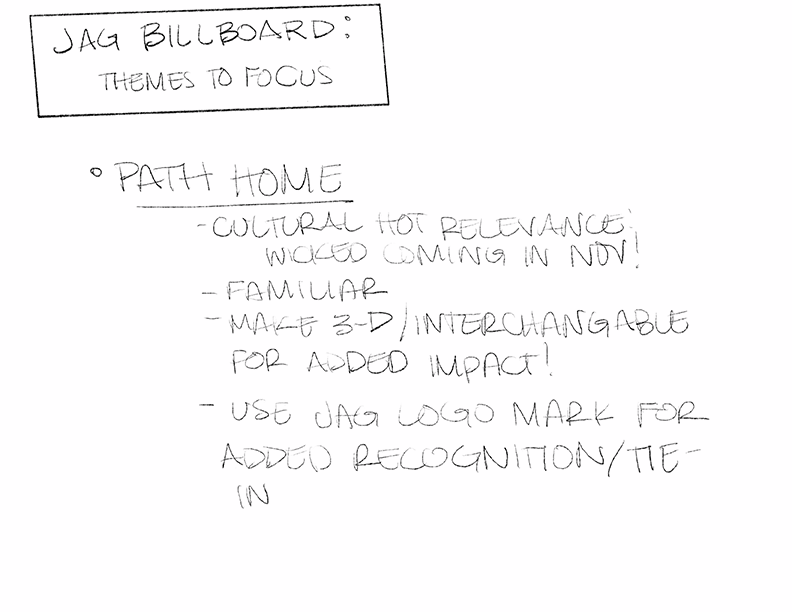 JAG BILLBOARD:
THEMES TO FOCUS
• PATH HOME
- CULTURAL HOT RELEVANCE:
WICKED COMING IN NOV!
- FAMILIAR
- MAKE 3-D/INTERCHANGABLE
FOR ADDED IMPACT!
- USE JAG LOGO MARK FOR
ADDED RECOGNITION/TIE-
IN